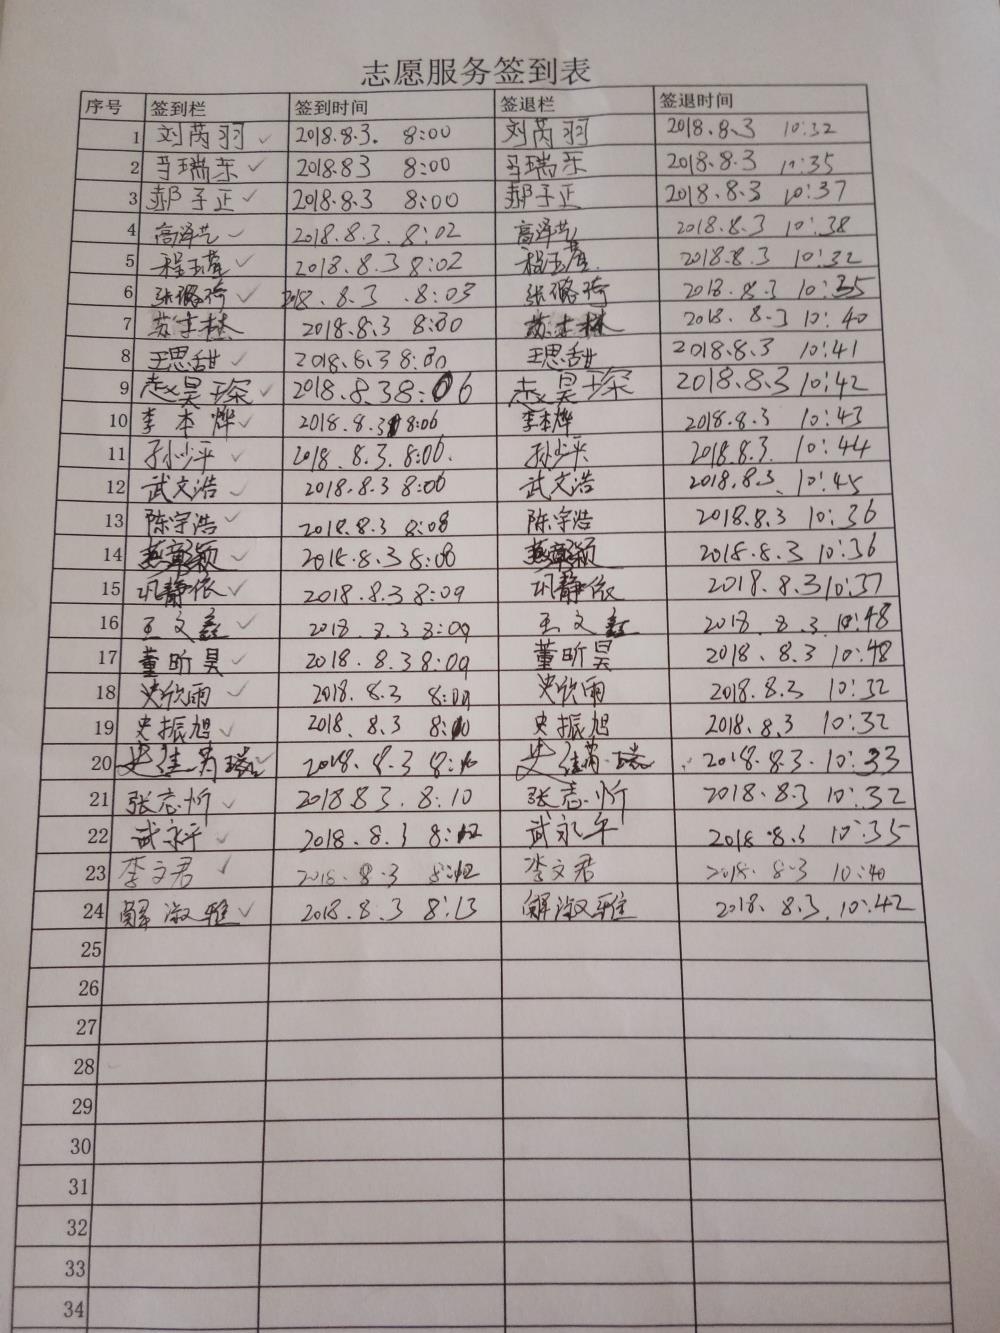 志愿服务签到表
序号 签到栏 签到时间 签退栏 签退时间
1 刘芮羽 2018.8.3. 8:00 刘芮羽 2018.8.3 10:32
2 马瑞东 2018.83 8:00 马瑞东 2018.8.3 10:35
3 郝子正 2018.8.3 8:00 郝子正 2018.8.3 10:37
4 高泽艺 2018.8.3. 8:02 高泽艺 2018.8.3 10:38
5 程玉 2018.8.3 8:02 程玉 2018.8.3 10:32
6 张璐琦 2018.8.3 .8:03 张璐琦 2018.8.3 10:35
7 苏 2018.8.3 8:00 苏 2018.8.3 10:40
8 王思甜 2018.8.3 8: 王思甜 2018.8.3 10:41
9 赵昊琛 2018.8.3 8:06 赵昊琛 2018.8.3 10:42
10 李本烨 2018.8.3 8:06 李本烨 2018.8.3 10:43
11 孙少平 2018.8.3.8:06. 孙少平 2018.8.3. 10:44
12 武文浩 2018.8.3 8:06 武文浩 2018.8.3. 10:45
13 陈宇浩 2018.8.3 8:08 陈宇浩 2018.8.3 10:36
14 颖 2018.8.3 8:08 颖 2018.8.3 10:36
15 巩静依 2018.8.3 8:09 巩静依 2018.8.3 10:37
16 王文鑫 2018.8.3 8:09 王文鑫 2018.8.3.10:48
17 董昕昊 2018.8.3 8:09 董昕昊 2018.8.3 10:48
18 史欣雨 2018.8.3 8:09 史欣雨 2018.8.3 10:32
19 史振旭 2018.8.3 8:10 史振旭 2018.8.3 10:32
20 史佳芮瑞 2018.8.3 8:10 史佳芮瑞 2018.8.3.10:33
21 张志忻 2018 8 3. 8:10 张志忻 2018.8.3 10:32
22 武永平 2018.8.3 8:12 武永平 2018.8.3 10:35
23 李文君 2018.8.3 8:12 李文君 2018.8.3 10:40
24 解淑雅 2018.8.3 8:13 解淑雅 2018.8.3.10:42
25
26
27
28
29
30
31
32
33
34